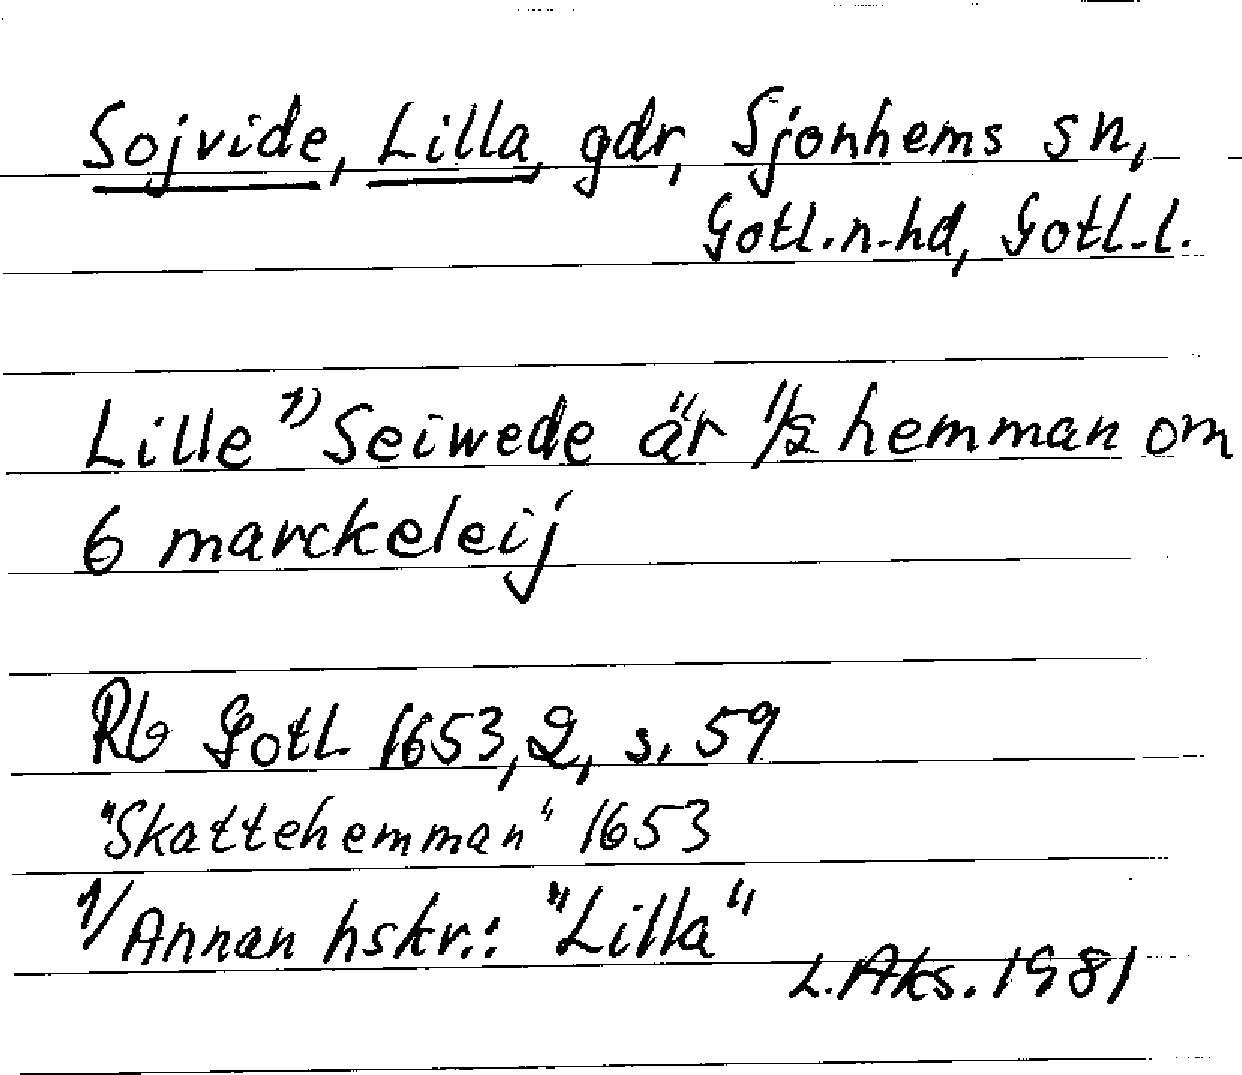 Sojvide, Lilla, gdr, Sjonhems sn,
Gotl.n.hd, Gotl.l.
Lille 1) Seiwede är 1/2 hemman om
6 marckeleij
Rb Gotl 1653,2, s. 59
"Skattehemman" 1653
1/ Annan hskr.: "Lilla"
L.Aks. 1981